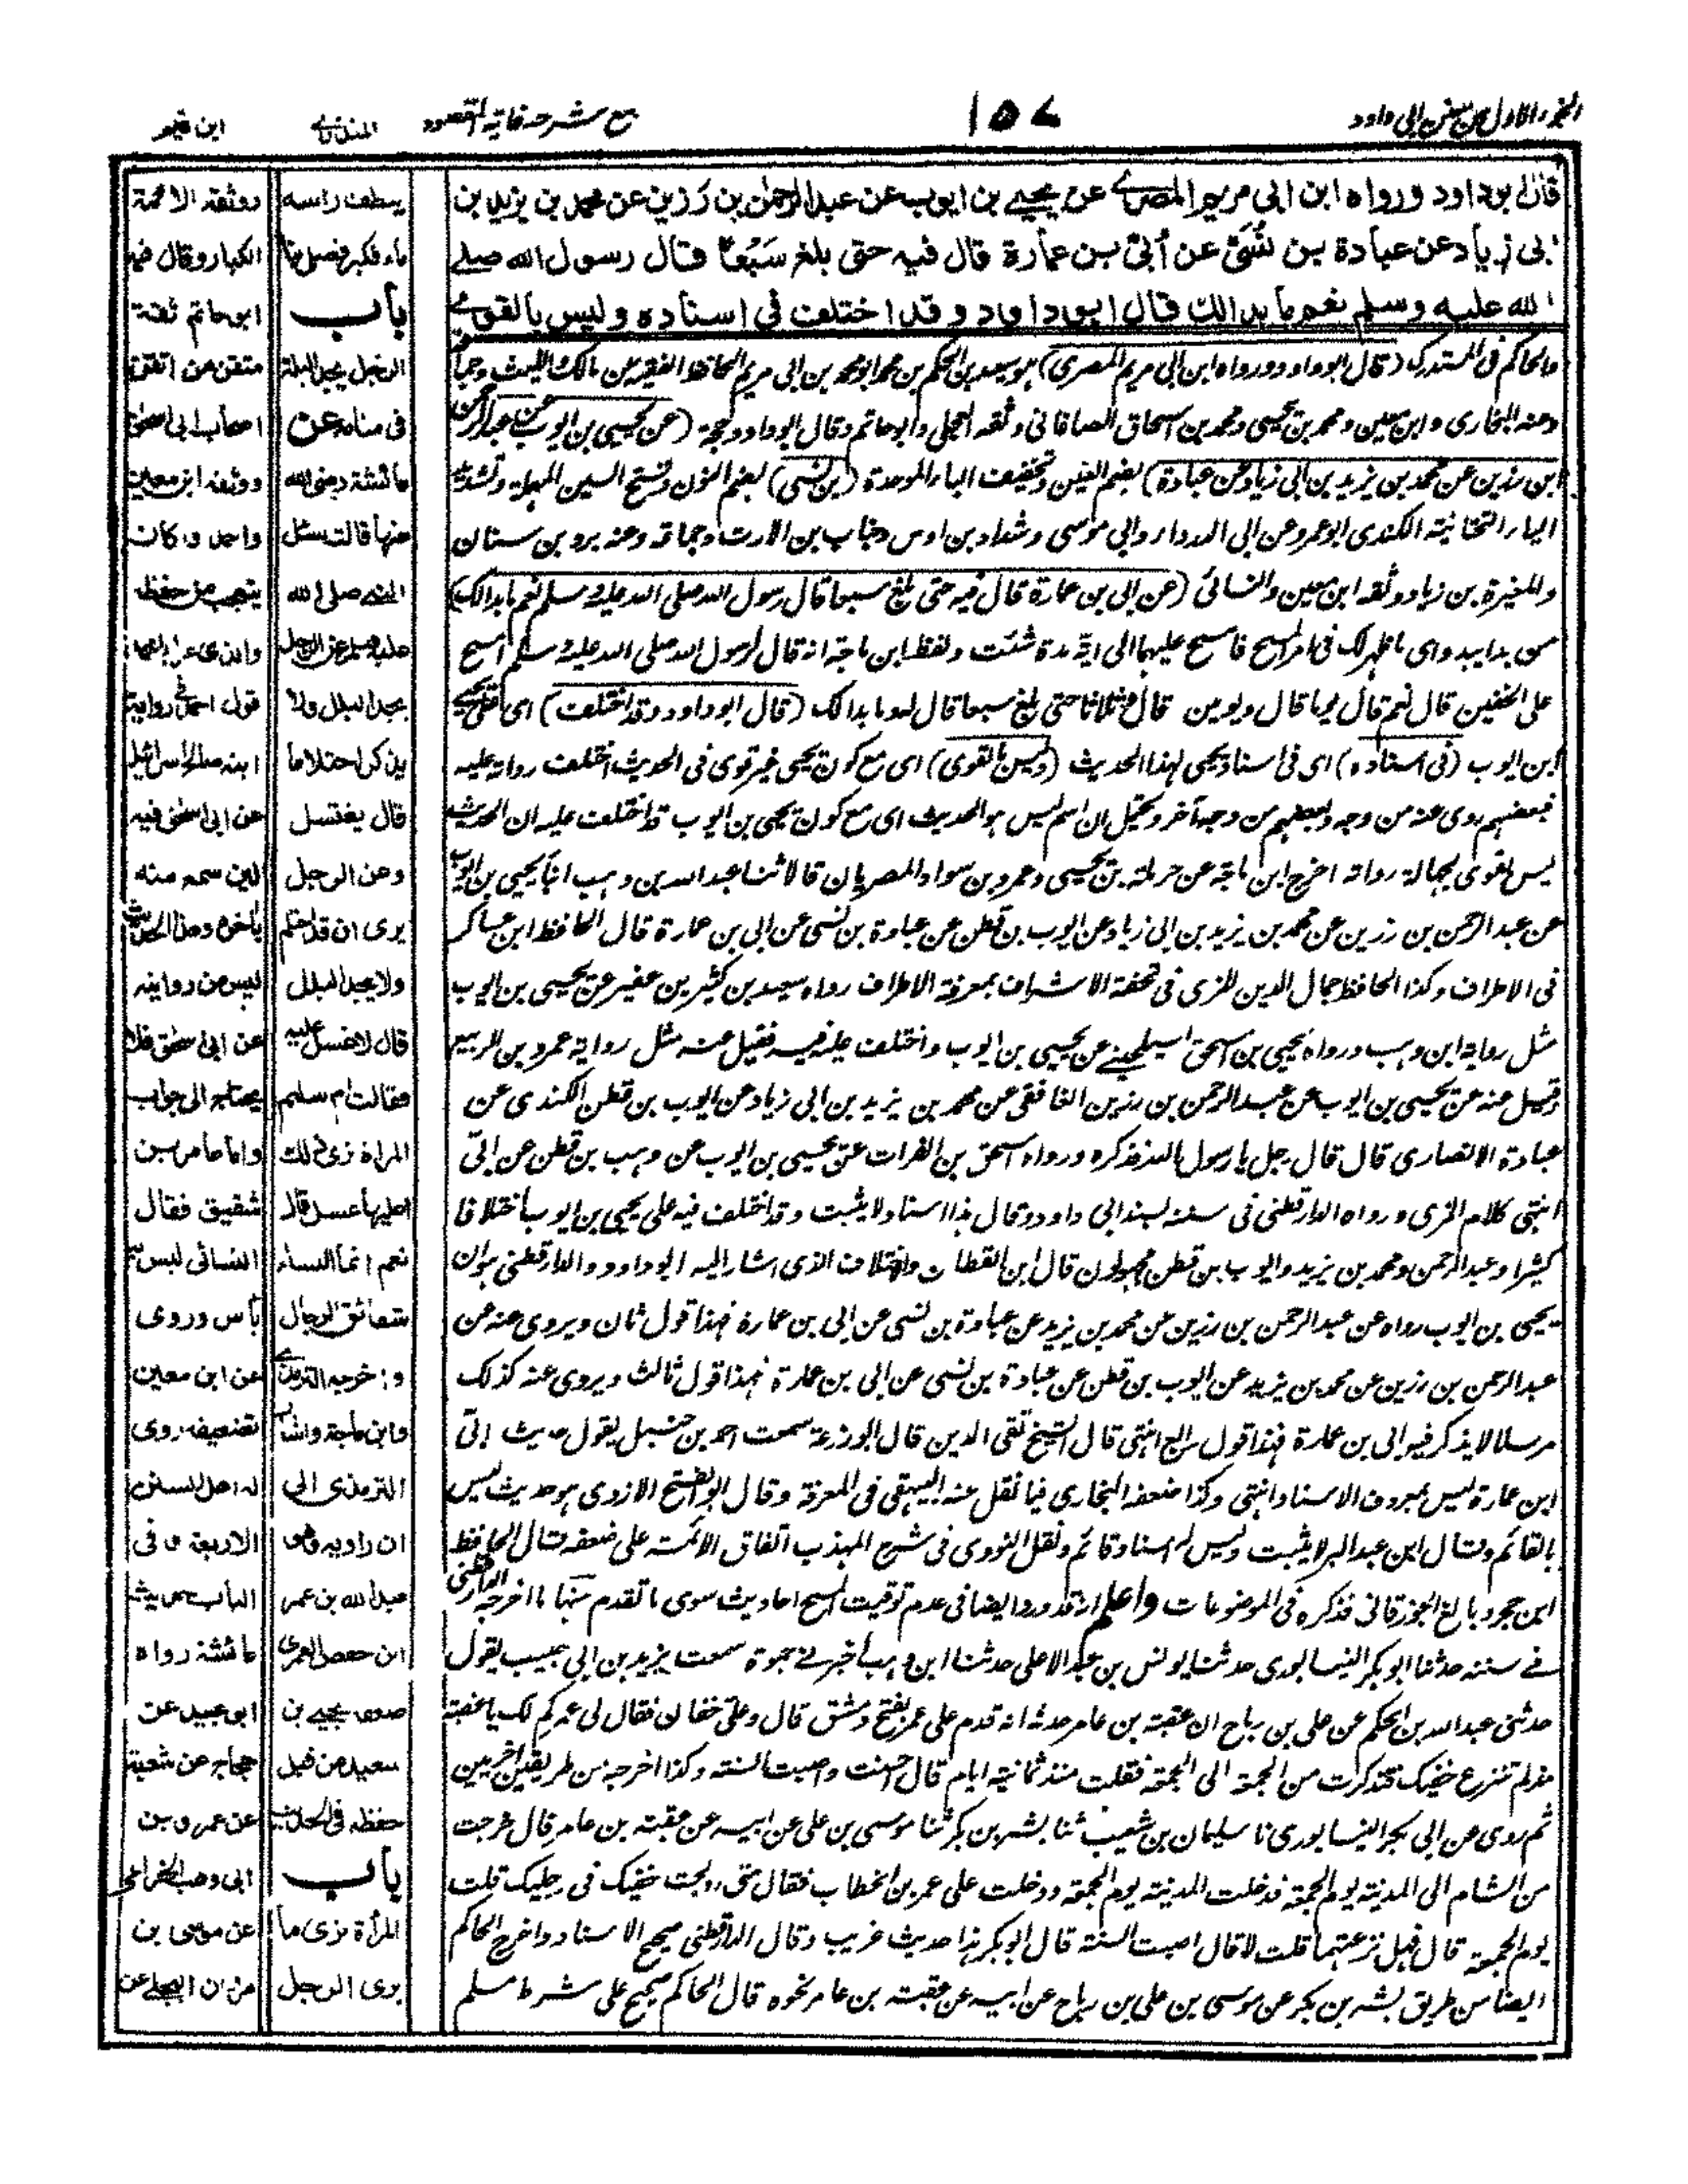 الجزء الاول من سنن ابى داود
١٥٧
مع شرحه غاية المقصود
المنذرى
ابن قيم
قال ابوداود ورواه ابن ابى مريم المصرى عن يحيى بن ايوب عن عبد الرحمن بن رزين عن محمد بن يزيد بن
ابى زياد عن عبادة بن نُسَىّ عن أُبَىّ بن عمارة قال فيه حتى بلغ سَبْعًا قال رسول الله صلى
الله عليه وسلم نعم ما بدا لك قال ابو داود وقد اختلف فى اسناده وليس بالقوى
والحاكم فى المستدرك (قال ابوداود ورواه ابن ابى مريم المصرى) هو سعيد بن الحكم بن محمد ابو محمد بن ابى مريم الحافظ الفقيه عن مالك والليث وجماعة
وعنه البخارى وابن معين ومحمد بن يحيى ومحمد بن اسحاق الصاغانى وثقه العجلى وابو حاتم وقال ابو داود حجة (عن يحيى بن ايوب عن عبد الرحمن
ابن رزين عن محمد بن يزيد بن ابى زياد عن عبادة) بضم العين وتخفيف الباء الموحدة (بن نسى) بضم النون وفتح السين المهملة وتشديد
الياء التحتانية الكندى ابو عمرو عن ابى الدرداء وابى موسى وشداد بن اوس وخباب بن الارت وجماعة وعنه برد بن سنان
والمغيرة بن زياد وثقه ابن معين والنسائى (عن ابى بن عمارة قال فيه حتى بلغ سبعا قال رسول الله صلى الله عليه وسلم نعم ما بدا لك)
من بدا يبدو اى ما ظهر لك فى امر المسح فامسح عليهما الى اية مدة شئت ولفظ ابن ماجة انه قال لرسول الله صلى الله عليه وسلم امسح
على الخفين قال نعم قال يوما قال ويومين قال وثلاثا حتى بلغ سبعا قال له وما بدا لك (قال ابو داود وقد اختلف) اى على يحيى
ابن ايوب (فى اسناده) اى فى اسناد يحيى لهذا الحديث (وليس بالقوى) اى مع كون يحيى غير قوى فى الحديث اختلف رواته عليه
فبعضهم روى عنه من وجه وبعضهم من وجه آخر ويحتمل ان اسم ليس هو الحديث اى مع كون يحيى بن ايوب قد اختلف عليه ان الحديث
ليس بقوى لجهالة رواته اخرج ابن ماجة عن حرملة بن يحيى وعمرو بن سواد المصريان قالا ثنا عبد الله بن وهب انبأ يحيى بن ايوب
عن عبد الرحمن بن رزين عن محمد بن يزيد بن ابى زياد عن ايوب بن قطن عن عبادة بن نسى عن ابى بن عمارة قال الحافظ ابن عساكر
فى الاطراف وكذا الحافظ جمال الدين المزى فى تحفة الاشراف بمعرفة الاطراف رواه سعيد بن كثير بن عفير عن يحيى بن ايوب
مثل رواية ابن وهب ورواه يحيى بن اسحق السيلحينى عن يحيى بن ايوب واختلف عليه فيه فقيل عنه مثل رواية عمرو بن الربيع
وقيل عنه عن يحيى بن ايوب عن عبد الرحمن بن رزين الغافقى عن محمد بن يزيد بن ابى زياد عن ايوب بن قطن الكندى عن
عبادة الانصارى قال قال رجل يا رسول الله فذكره ورواه اسحق بن الفرات عن يحيى بن ايوب عن وهب بن قطن عن ابى
انتهى كلام المزى ورواه الدارقطنى فى سننه بسند ابى داود وقال هذا اسناد لا يثبت وقد اختلف فيه على يحيى بن ايوب اختلافا
كثيرا وعبد الرحمن ومحمد بن يزيد وايوب بن قطن مجهولون قال ابن القطان والاختلاف الذى اشار اليه ابو داود والدارقطنى هو ان
يحيى بن ايوب رواه عن عبد الرحمن بن رزين عن محمد بن يزيد عن عبادة بن نسى عن ابى بن عمارة فهذا قول ثان ويروى عنه عن
عبد الرحمن بن رزين عن محمد بن يزيد عن ايوب بن قطن عن عبادة بن نسى عن ابى بن عمارة فهذا قول ثالث ويروى عنه كذلك
مرسلا لا يذكر فيه ابى بن عمارة فهذا قول رابع انتهى قال الشيخ تقى الدين قال ابو زرعة سمعت احمد بن حنبل يقول حديث ابى
ابن عمارة ليس بمعروف الاسناد انتهى وكذا ضعفه البخارى فيما نقل عنه البيهقى فى المعرفة وقال ابو الفتح الازدى هو حديث ليس
بالقائم وقال ابن عبد البر لا يثبت وليس له اسناد قائم ونقل النووى فى شرح المهذب اتفاق الائمة على ضعفه قال الحافظ
ابن حجر وبالغ الجوزقانى فذكره فى الموضوعات واعلم انه قد وردا يضا فى عدم توقيت المسح احاديث سوى ما تقدم منها ما اخرجه الدارقطنى
فى سننه حدثنا ابو بكر النيسابورى حدثنا يونس بن عبد الاعلى حدثنا ابن وهب اخبرنى حيوة سمعت يزيد بن ابى حبيب يقول
حدثنى عبد الله بن الحكم عن على بن رباح ان عقبة بن عامر حدثه انه قدم على عمر بفتح دمشق قال وعلىّ خفان فقال لى عمر كم لك يا عقبة
منذ لم تنزع خفيك فتذكرت من الجمعة الى الجمعة فقلت منذ ثمانية ايام قال احسنت واصبت السنة وكذا اخرجه من طريقين آخرين
ثم روى عن ابى بكر النيسابورى نا سليمان بن شعيب ثنا بشر بن بكر ثنا موسى بن على عن ابيه عن عقبة بن عامر قال خرجت
من الشام الى المدينة يوم الجمعة فدخلت المدينة يوم الجمعة ودخلت على عمر بن الخطاب فقال متى اولجت خفيك فى رجليك قلت
يوم الجمعة قال فهل نزعتهما قلت لا قال اصبت السنة قال ابو بكر هذا حديث غريب وقال الدارقطنى صحيح الاسناد واخرج الحاكم
ايضا من طريق بشر بن بكر عن موسى بن على بن رباح عن ابيه عن عقبة بن عامر نحوه قال الحاكم صحيح على شرط مسلم
يسطف راسه
ماء فكبر فصلى بنا
باب
الرجل يجد البلة
فى منامه عن
عائشة رضى الله
عنها قالت سئل
النبى صلى الله
عليه وسلم عن الرجل
يجد البلل ولا
يذكر احتلاما
قال يغتسل
وعن الرجل
يرى ان قد احتلم
ولا يجد البلل
قال لا غسل عليه
فقالت ام سليم
المراة ترى ذلك
اعليها غسل قال
نعم انما النساء
شقائق الرجال
واخرجه الترمذى
وابن ماجة واشار
الترمذى الى
ان راويه وهو
عبد الله بن عمر
ابن حفص العمرى
ضعفه يحيى بن
سعيد من قبل
حفظه فى الحديث
باب
المرأة ترى ما
يرى الرجل
ووثقه الائمة
الكبار وقال فيه
ابو حاتم ثقة
متقن من اتقن
اصحاب ابى اسحق
ووثقه ابن معين
واحمد وكان
يتعجب من حفظه
قول احمد فى رواية
ابنه صالح اسرائيل
عن ابى اسحق فيه
لين سمع منه
باخرة وهذا الحديث
ليس من روايته
عن ابى اسحق فلا
يحتاج الى جواب
واما عامر بن
شقيق فقال
النسائى ليس به
بأس وروى
عن ابن معين
تضعيفه روى
له اهل السنن
الاربعة وفى
الباب حديث
عائشة رواه
ابو عبيد عن
حجاج عن شعبة
عن عمرو بن
ابى وهب الخزاعى
عن موسى بن
ثروان البجلى عن